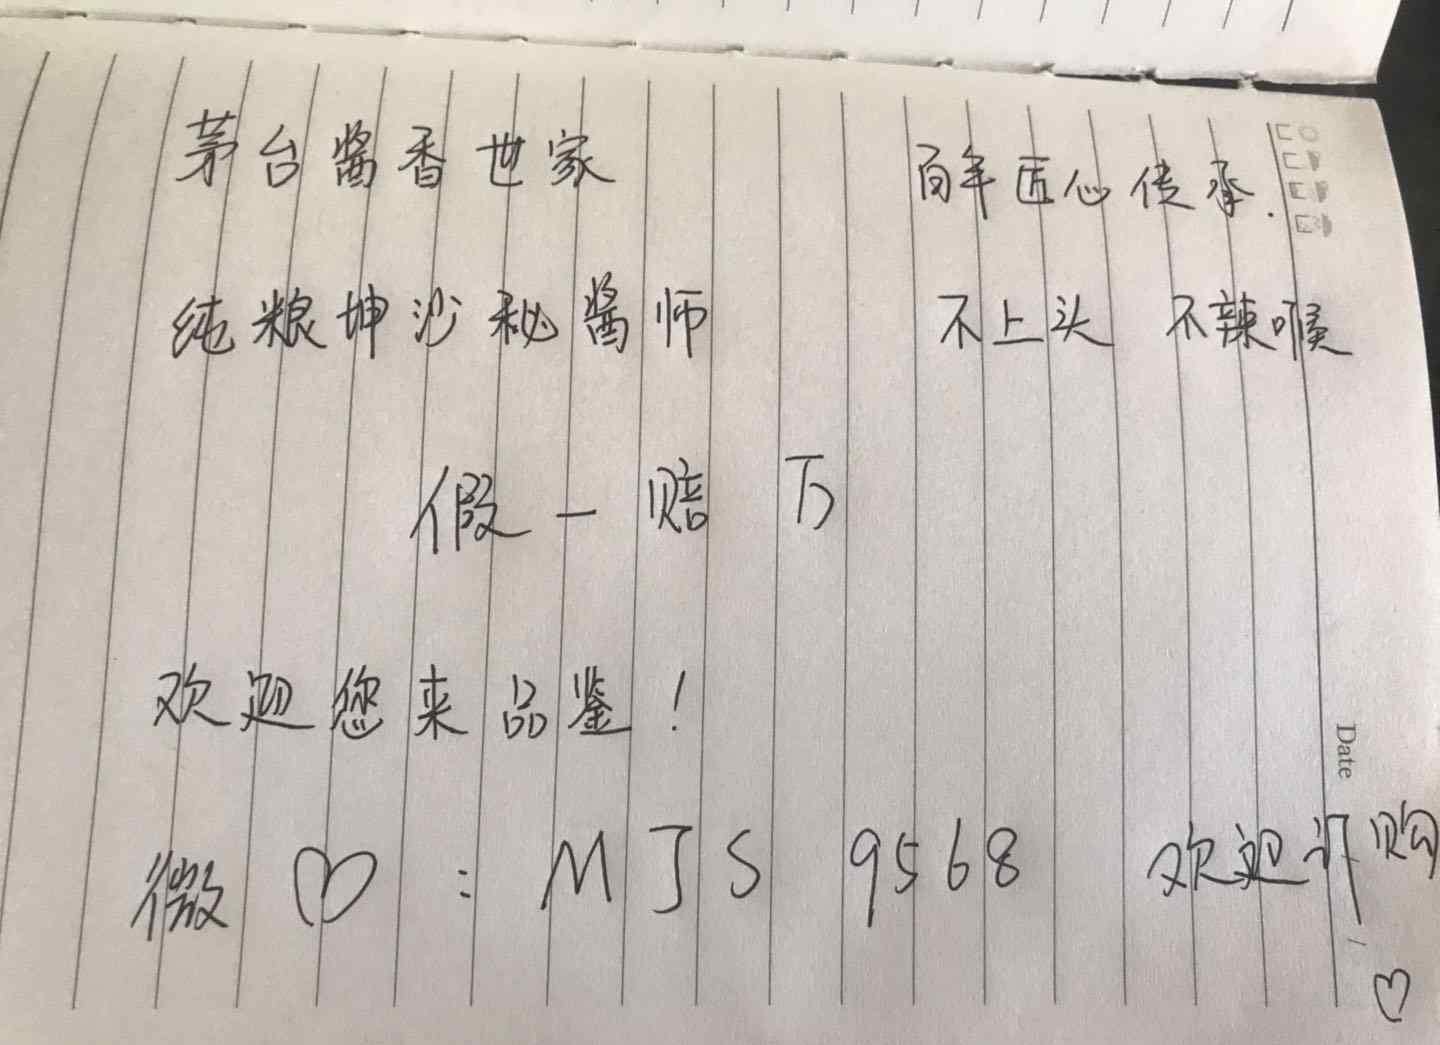 茅台酱香世家 百年匠心传承.
纯粮坤沙秘酱师 不上头 不辣喉
假一赔万
欢迎您来品鉴!
微♡:MJS 9568 欢迎订购
♡
Date